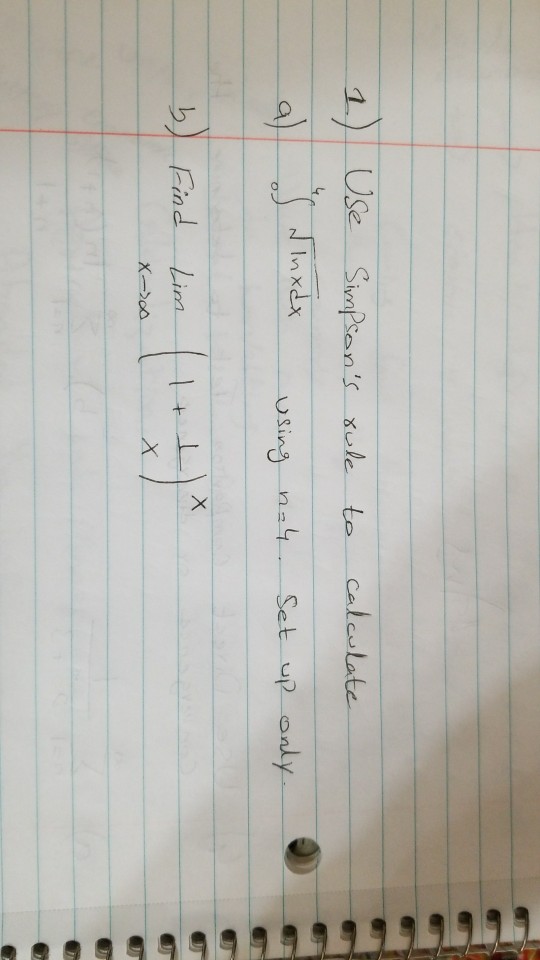 1) Use Simpson's rule to calculate
a) ₀∫⁴ √lnxdx using n=4. Set up only.
b) Find Lim x→∞ (1 + 1/x)ˣ